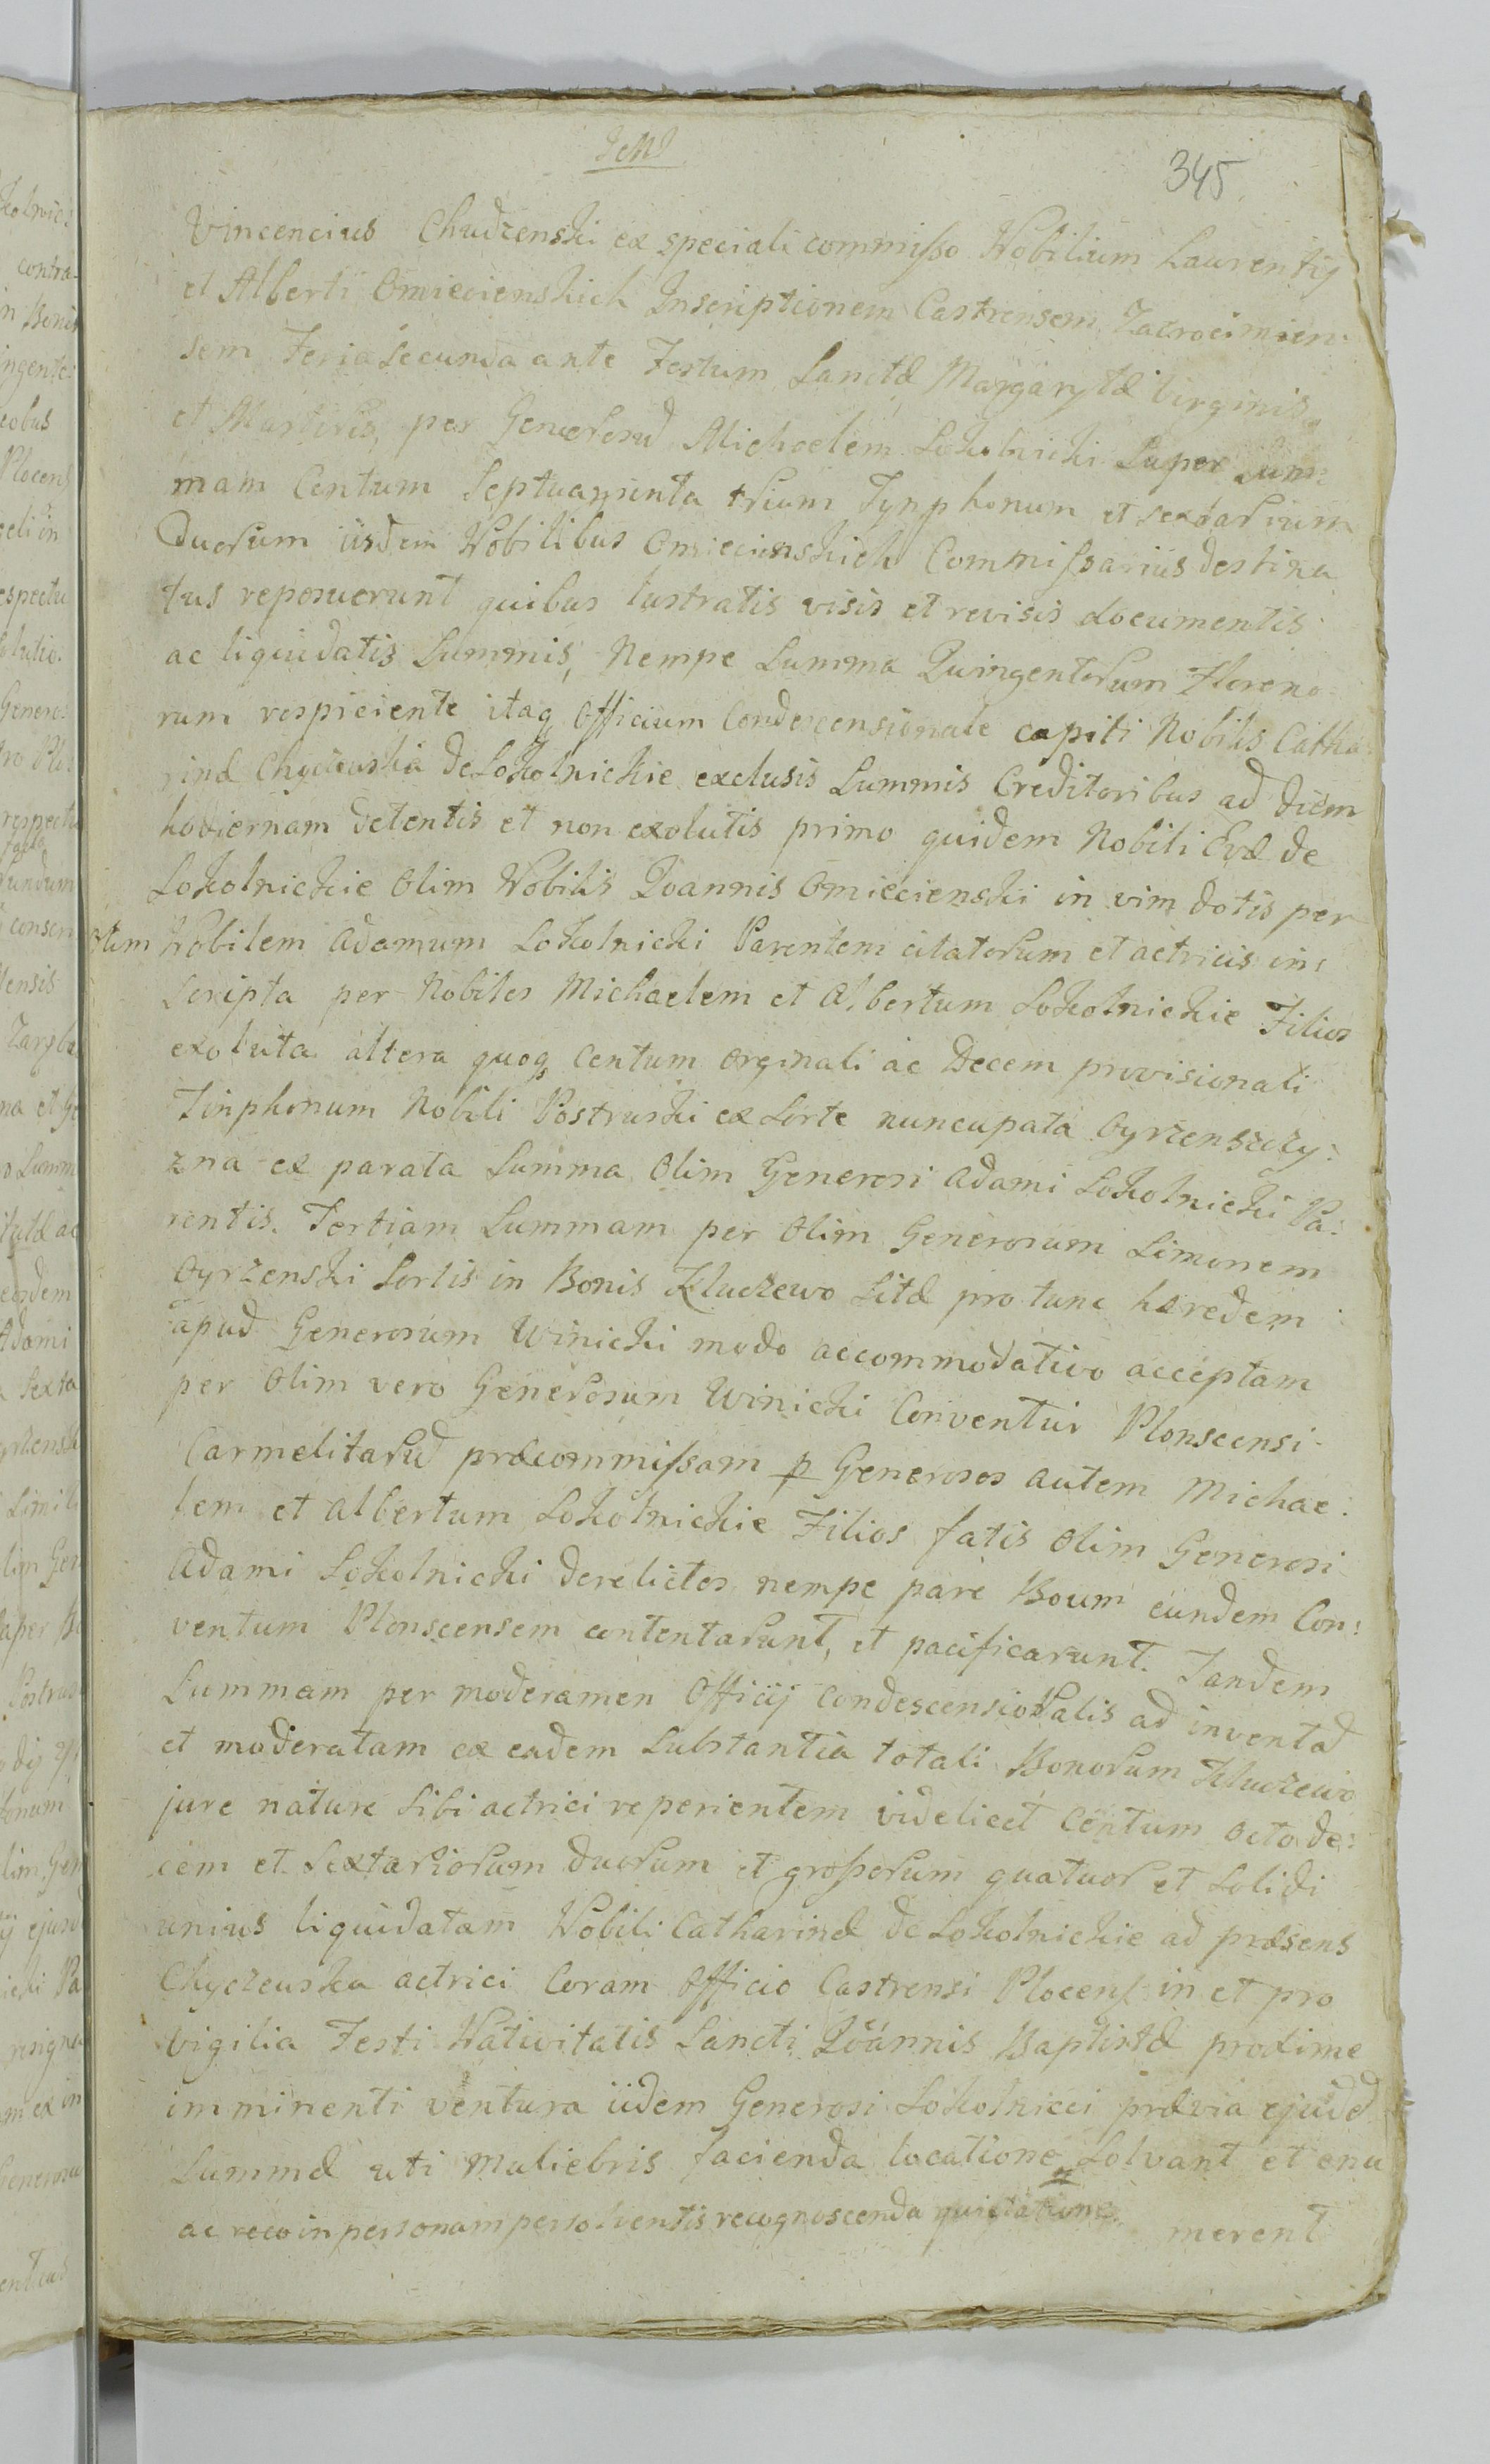 345
Vincencius Chudzenski ex speciali commisso Nobilium Laurentij
et Alberti Omiecienskich Inscriptionem Castrensem Zacrocimien:
sem Feria Secunda ante Festum Sanctæ Margarytæ Virginis
et Martiris, per Generosud Michaelem Sokolnicki Super Sum:
mam Centum Septuaginta trium Tynphonum et sextarium
Duorum iisdem Nobilibus Omiecienskich Commissarius destina
tus reposuerunt quibus lustratis visis et revisis documentis
ac liquidatis Summis, Nempe Summa Quingentorum Floreno
rum respiciente itaq Officium Condescensionale capiti Nobilis Catha:
rinæ Chyczewska de Sokolnickie exclusis Summis Creditoribus ad diem
hodiernam detentis et non exolutis primo quidem Nobili Evæ de
Sokolnickie Olim Nobilis Joannis Omiecienski in vim dotis per
Olim Nobilem Adamum Sokolnicki Parentem citatorum et actricis in:
scripta per Nobiles Michaelem et Albertum Sokolnickie Filios
exoluta altera quoq Centum orginali ac Decem provisionali
Tinphonum Nobili Postruski ex Sorte nuncupata Gyrzenszczy:
zna ex parata Summa Olim Generosi Adami Sokolnicki Pa:
rentis. Tertiam Summam per Olim Generosum Simonem
Gyrzenski Sortis in Bonis Kluczewo Sitæ pro tunc hæredem
apud Generosum Winicki modo accommodativo acceptam
per Olim vero Generosum Winicki Conventui Plonscensi
Carmelitarud præcommissam p Generosos autem Michae:
lem et Albertum Sokolnickie Filios fatis Olim Generosi
Adami Sokolnicki derelictos nempe pare Boum eundem Con:
ventum Plonscensem contentarunt, et pacificarunt. Tandem
Summam per moderamen Officij Condescensionalis ad inventad
et moderatam ex eadem Substantia totali Bonorum Kluczewo
jure nature Sibi actrici reperientem videlicet Centum octode:
cem et Sextariorum duorum et grossorum quatuor et Solidi
unius liquidatam Nobili Catharinæ de Sokolnickie ad præsens
Chyczewska actrici Coram Officio Castrensi Plocens in et pro
Vigilia Festi Nativitatis Sancti Joannis Baptistæ proxime
imminenti ventura iidem Generosi Sokolnicci prævia ejusdd
Summæ uti Muliebris facienda locatione Solvant et enu
ac reco in personam persolventis recognoscenda quietatione
merent